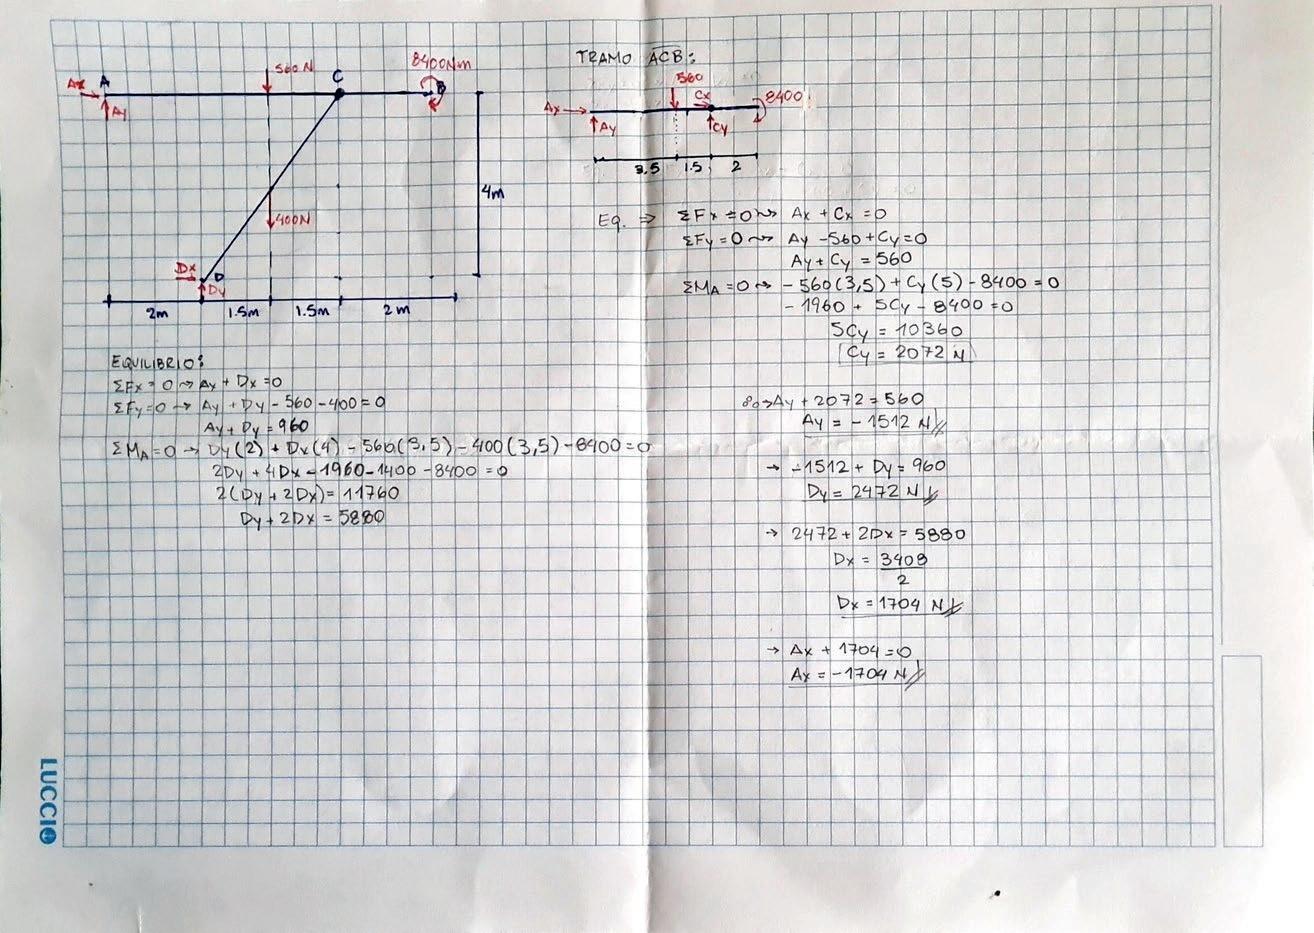 560 N
8400Nm
Ax
A
Ay
C
B
4m
400N
Dx
D
Dy
2m
1.5m
1.5m
2 m
EQUILIBRIO:
ΣFx = 0 → Ax + Dx = 0
ΣFy = 0 → Ay + Dy - 560 - 400 = 0
Ay + Dy = 960
ΣMA = 0 → Dy(2) + Dx(4) - 560(3,5) - 400(3,5) - 8400 = 0
2Dy + 4Dx - 1960 - 1400 - 8400 = 0
2(Dy + 2Dx) = 11760
Dy + 2Dx = 5880
TRAMO ACB:
560
Cx
8400
Ax
Ay
Cy
3.5
1.5
2
Eq. ⇒ ΣFx = 0 → Ax + Cx = 0
ΣFy = 0 → Ay - 560 + Cy = 0
Ay + Cy = 560
ΣMA = 0 → - 560(3,5) + Cy(5) - 8400 = 0
- 1960 + 5Cy - 8400 = 0
5Cy = 10360
Cy = 2072 N
∴ → Ay + 2072 = 560
Ay = - 1512 N
→ -1512 + Dy = 960
Dy = 2472 N
→ 2472 + 2Dx = 5880
Dx = 3408
2
Dx = 1704 N
→ Ax + 1704 = 0
Ax = - 1704 N
LUCCIO